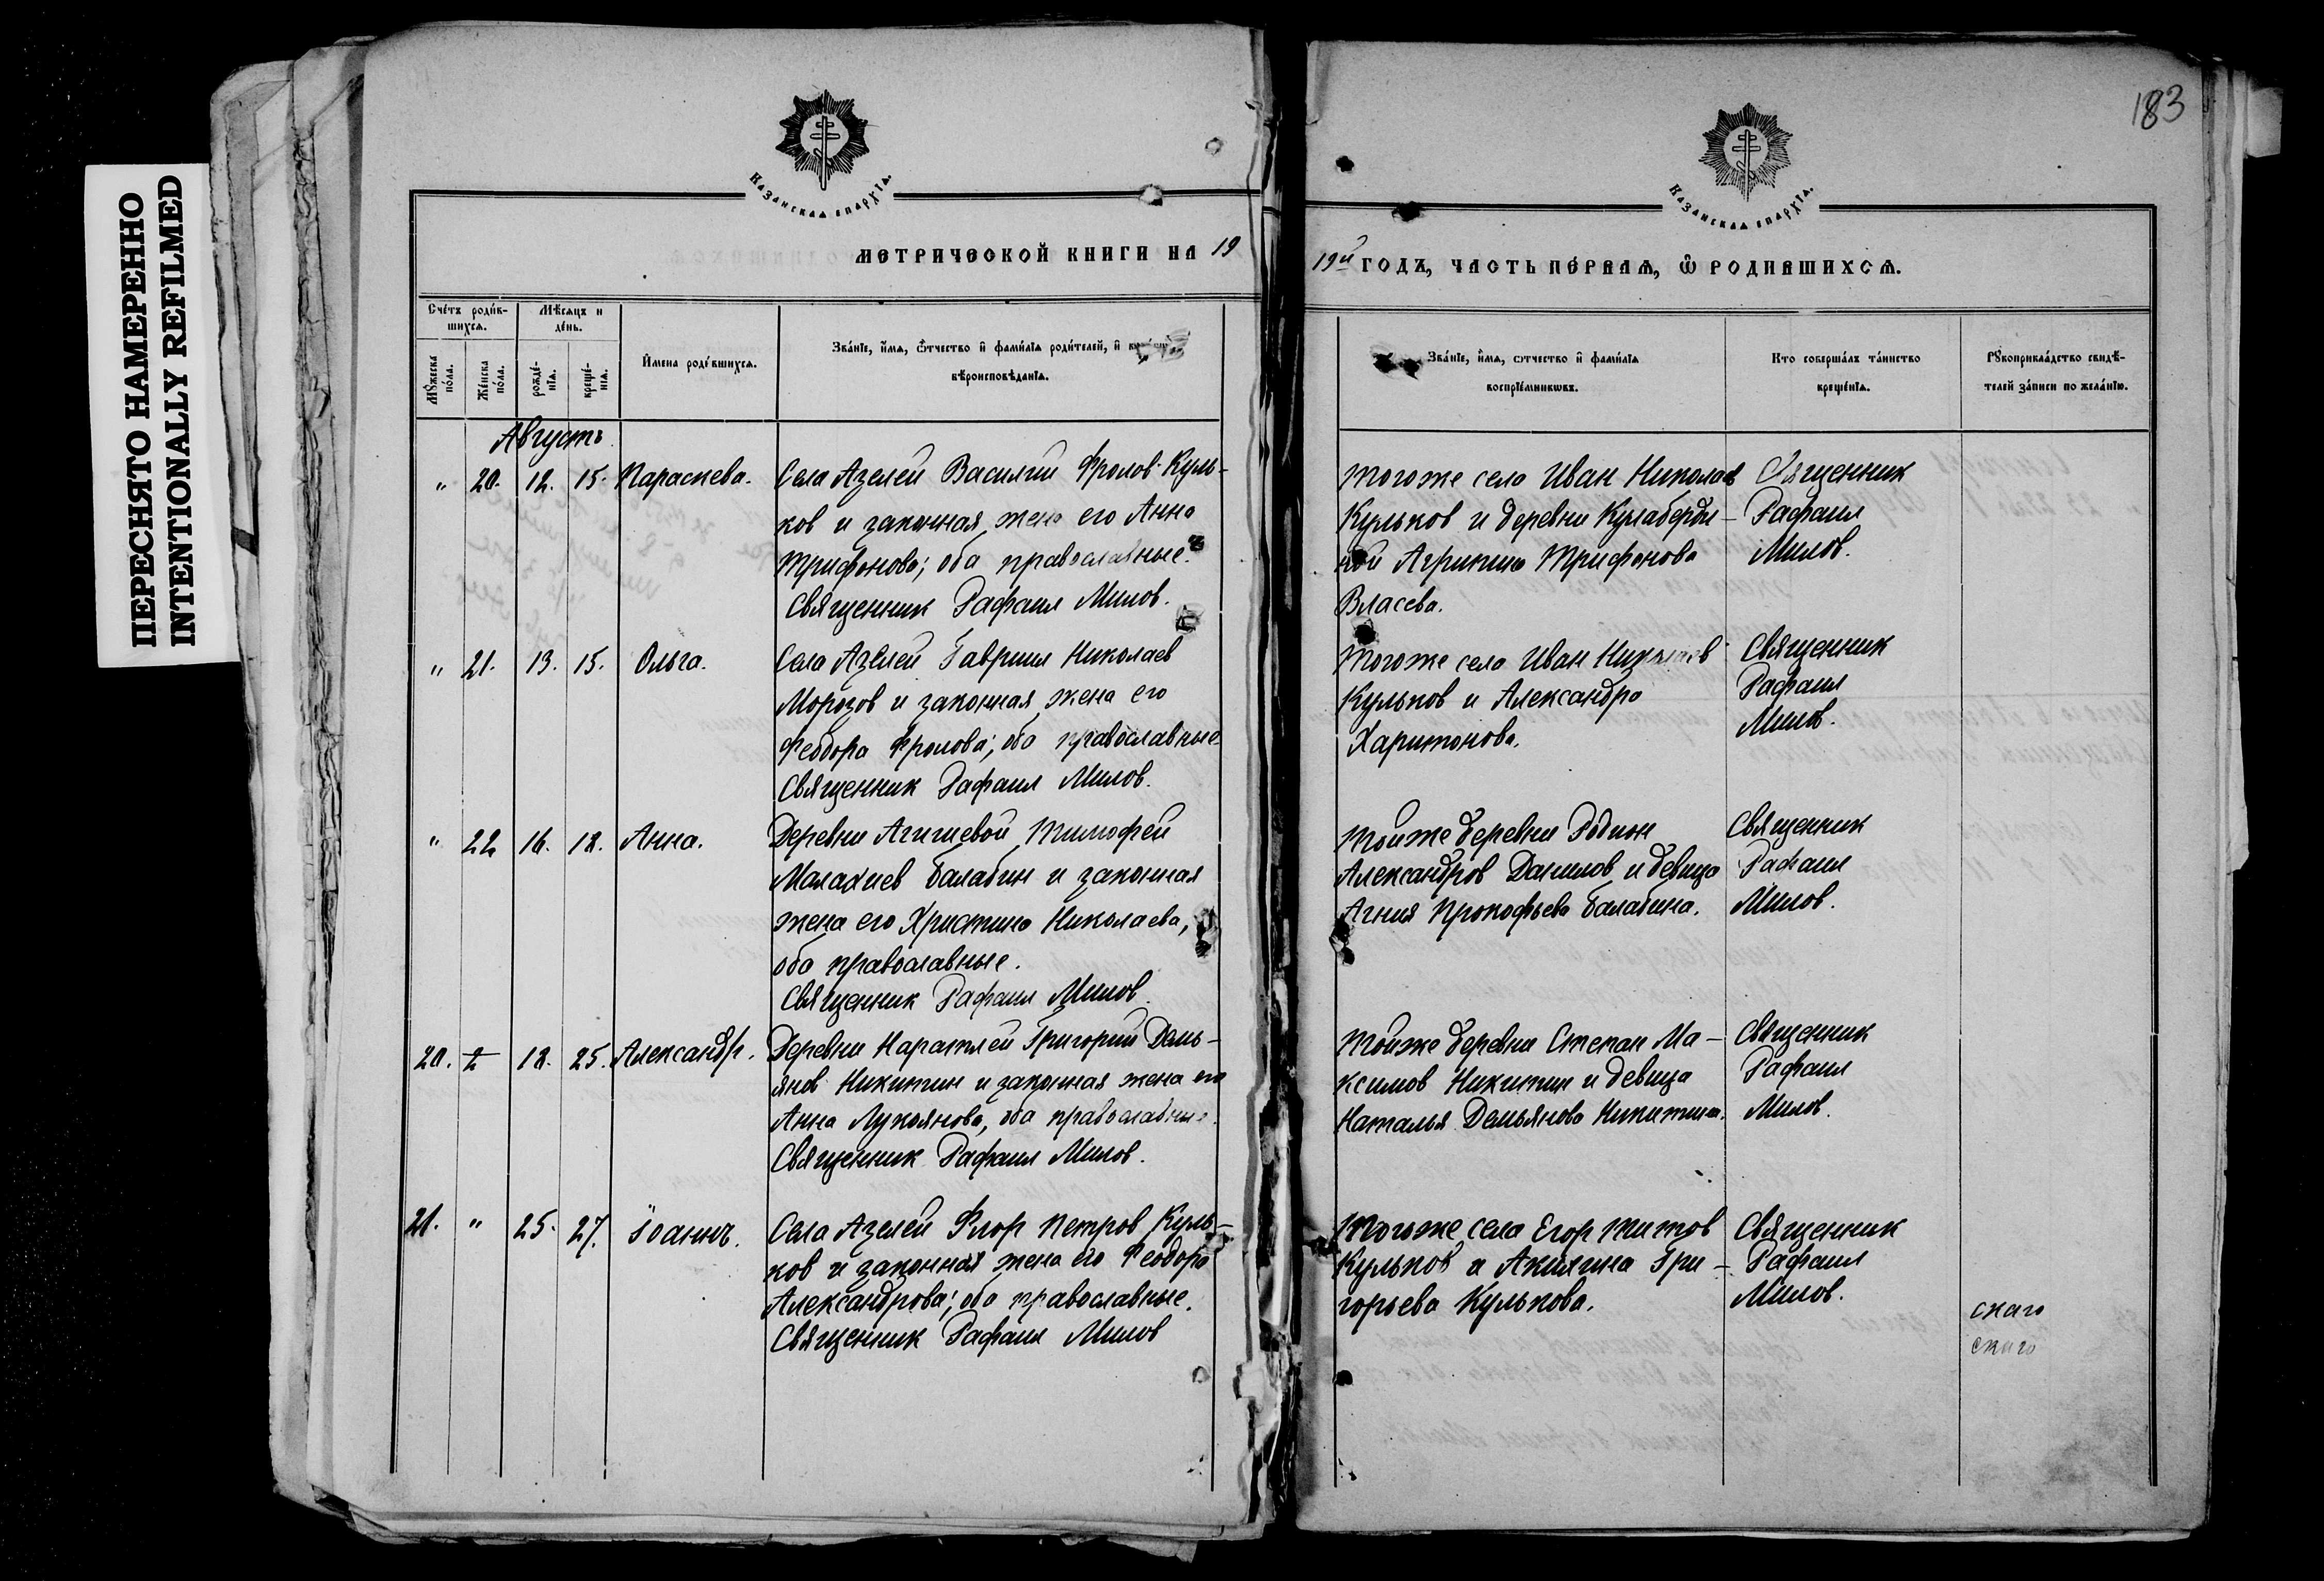 ПЕРЕСНЯТО НАМЕРЕННО
INTENTIONALLY REFILMED
183
КАЗАНСКАЯ ЕПАРХІЯ.
КАЗАНСКАЯ ЕПАРХІЯ.
МЕТРИЧЕСКОЙ КНИГИ НА 19
19й ГОДЪ, ЧАСТЬ ПЕРВАЯ, Ѿ РОДИВШИХСЯ.
Счетъ родив-
шихся.
Мѣсяцъ и
день.
Мужеска
пола.
Женска
пола.
рожде-
нія.
креще-
нія.
Имена родившихся.
Званіе, имя, ѿтчество и фамилія родителей, и
вѣроисповѣданія.
Званіе, имя, отчество и фамилія
воспріемниковъ.
Кто совершалъ таинство
крещенія.
Рукоприкладство свидѣ-
телей записи по желанію.
Августъ
" 20. 12. 15. Параскева.
Села Азелей Василий Фролов Куль-
ков и законная жена его Анна
Трифонова; оба православные.
Священник Рафаил Милов.
Тогоже села Иван Николаев
Кульков и деревни Кулаберди-
ной Агрипина Трифонова
Власева.
Священник
Рафаил
Милов.
" 21. 13. 15. Ольга.
Села Азелей Гавриил Николаев
Морозов и законная жена его
Феодора Фролова; оба православные
Священник Рафаил Милов.
Тогоже села Иван Николаев
Кульков и Александра
Харитонова.
Священник
Рафаил
Милов.
" 22 16. 18. Анна.
Деревни Агишевой Тимофей
Малахиев Балабин и законная
жена его Христина Николаева,
оба православные.
Священник Рафаил Милов.
Тойже деревни Родион
Александров Данилов и девица
Агния Прокофьева Балабина.
Священник
Рафаил
Милов.
20. 18. 25. Александр.
Деревни Нараткей Григорий Демь-
янов Никитин и законная жена его
Анна Лукоянова, оба православные.
Священник Рафаил Милов.
Тойже деревни Степан Ма-
ксимов Никитин и девица
Наталья Демьянова Никитина.
Священник
Рафаил
Милов.
21. " 25. 27. Іоаннъ.
Села Азелей Флор Петров Куль-
ков и законная жена его Феодора
Александрова; оба православные.
Священник Рафаил Милов
Тогоже села Егор Титов
Кульков и Акилина Гри-
горьева Кулькова.
Священник
Рафаил
Милов.
скаго
скаго